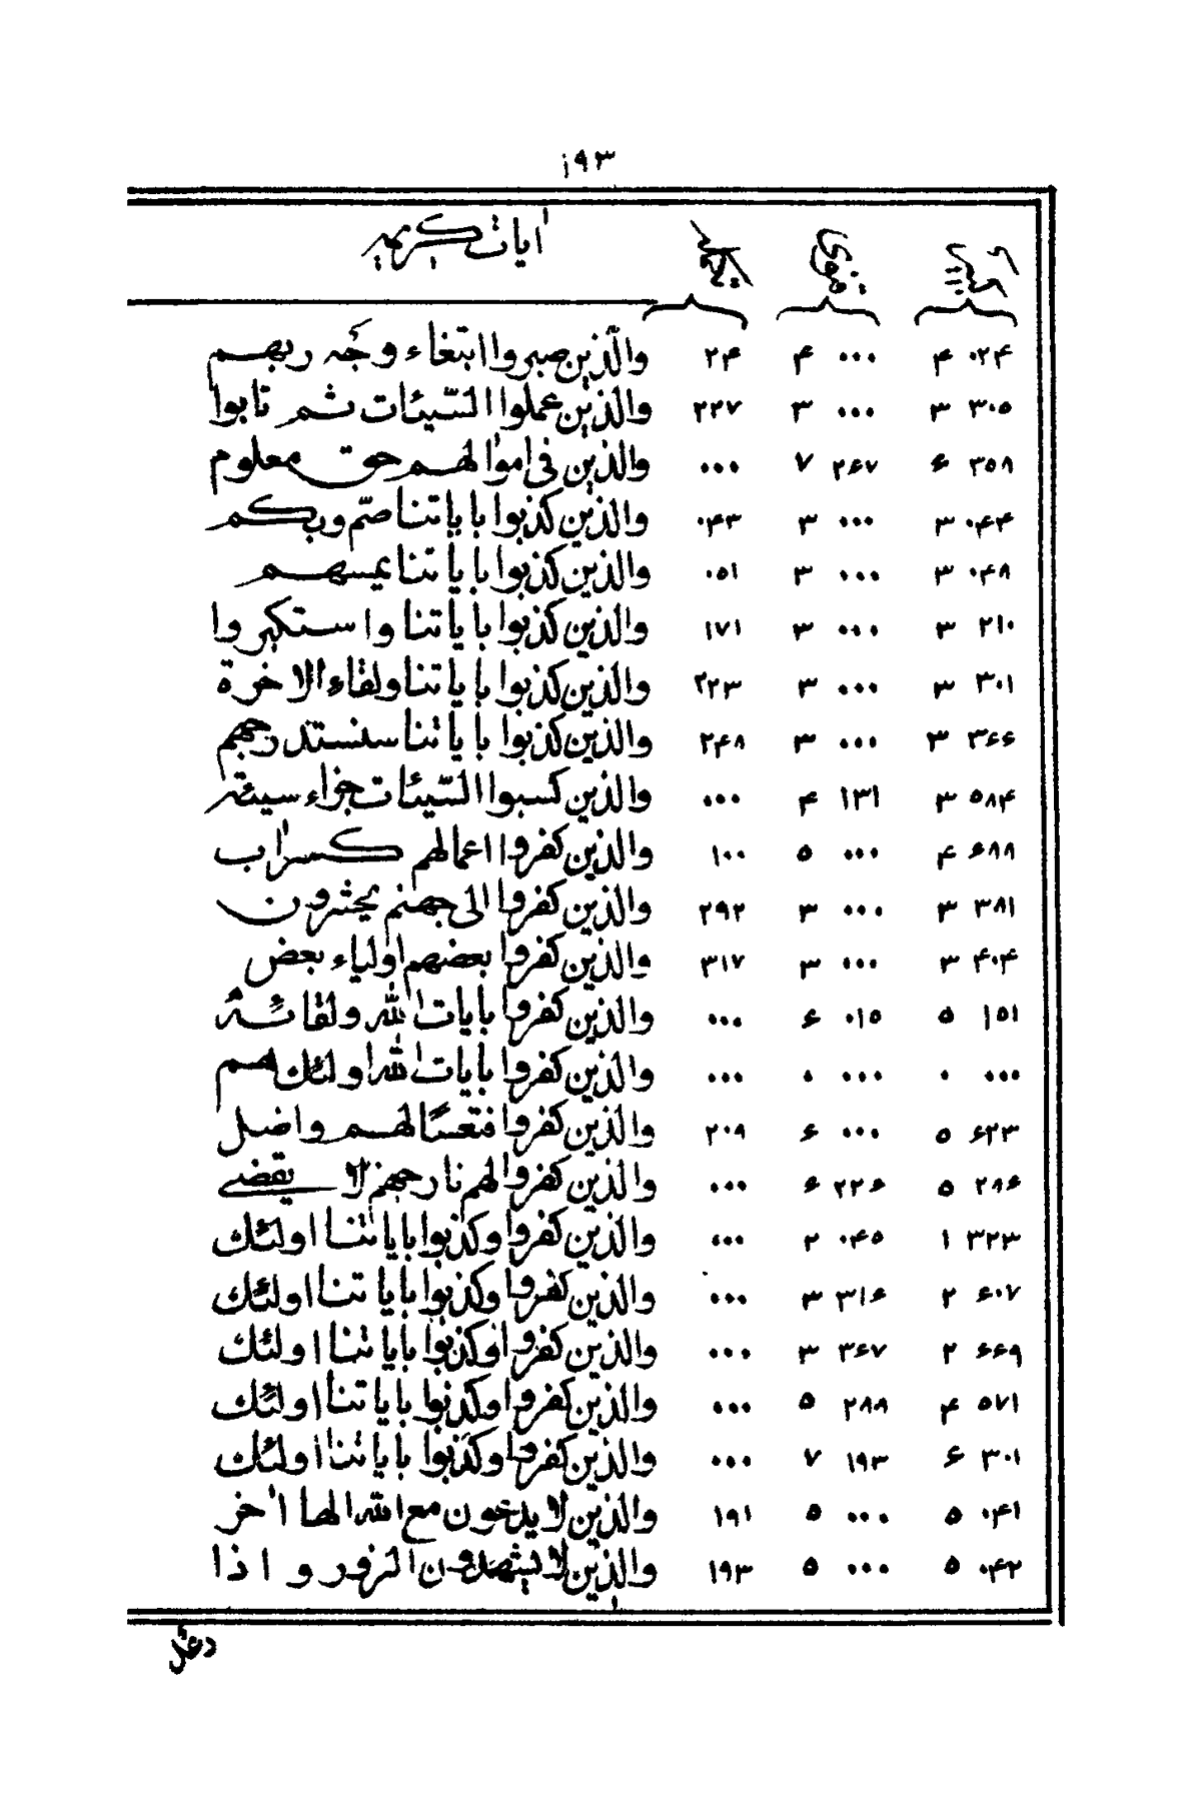 ۱۹۳
آیات کریمه
۴ ۰۲۴ ۴ ۰۰۰ ۲۴ والذین صبروا ابتغاء وجه ربهم
۳ ۳۰۵ ۳ ۰۰۰ ۲۲۷ والذین عملوا السیئات ثم تابوا
۶ ۳۵۸ ۷ ۲۶۷ ۰۰۰ والذین فی اموالهم حق معلوم
۳ ۰۴۴ ۳ ۰۰۰ ۰۴۳ والذین کذبوا بایاتنا صم وبکم
۳ ۰۴۸ ۳ ۰۰۰ ۰۵۱ والذین کذبوا بایاتنا یمسهم
۳ ۲۱۰ ۳ ۰۰۰ ۱۷۱ والذین کذبوا بایاتنا واستکبروا
۳ ۳۰۱ ۳ ۰۰۰ ۲۲۳ والذین کذبوا بایاتنا ولقاء الاخرة
۳ ۳۶۶ ۳ ۰۰۰ ۲۴۸ والذین کذبوا بایاتنا سنستدرجهم
۳ ۵۸۴ ۴ ۱۳۱ ۰۰۰ والذین کسبوا السیئات جزاء سیئة
۴ ۶۸۸ ۵ ۰۰۰ ۱۰۰ والذین کفروا اعمالهم کسراب
۳ ۳۸۱ ۳ ۰۰۰ ۲۹۲ والذین کفروا الی جهنم یحشرون
۳ ۴۰۴ ۳ ۰۰۰ ۳۱۷ والذین کفروا بعضهم اولیاء بعض
۵ ۱۵۱ ۶ ۰۱۵ ۰۰۰ والذین کفروا بایات الله ولقائه
۰ ۰۰۰ ۰ ۰۰۰ ۰۰۰ والذین کفروا بایات الله اولئك هم
۵ ۶۲۳ ۶ ۰۰۰ ۲۰۹ والذین کفروا فتعسا لهم واضل
۵ ۲۸۶ ۶ ۲۲۶ ۰۰۰ والذین کفروا لهم نار جهنم لا یقضی
۱ ۳۲۳ ۲ ۰۴۵ ۰۰۰ والذین کفروا وکذبوا بایاتنا اولئك
۲ ۶۰۷ ۳ ۳۱۶ ۰۰۰ والذین کفروا وکذبوا بایاتنا اولئك
۲ ۶۶۹ ۳ ۳۶۷ ۰۰۰ والذین کفروا وکذبوا بایاتنا اولئك
۴ ۵۷۱ ۵ ۲۸۸ ۰۰۰ والذین کفروا وکذبوا بایاتنا اولئك
۶ ۳۰۱ ۷ ۱۹۳ ۰۰۰ والذین کفروا وکذبوا بایاتنا اولئك
۵ ۰۴۱ ۵ ۰۰۰ ۱۹۱ والذین لا یدعون مع الله الها اخر
۵ ۰۴۲ ۵ ۰۰۰ ۱۹۳ والذین لا یشهدون الزور و اذا